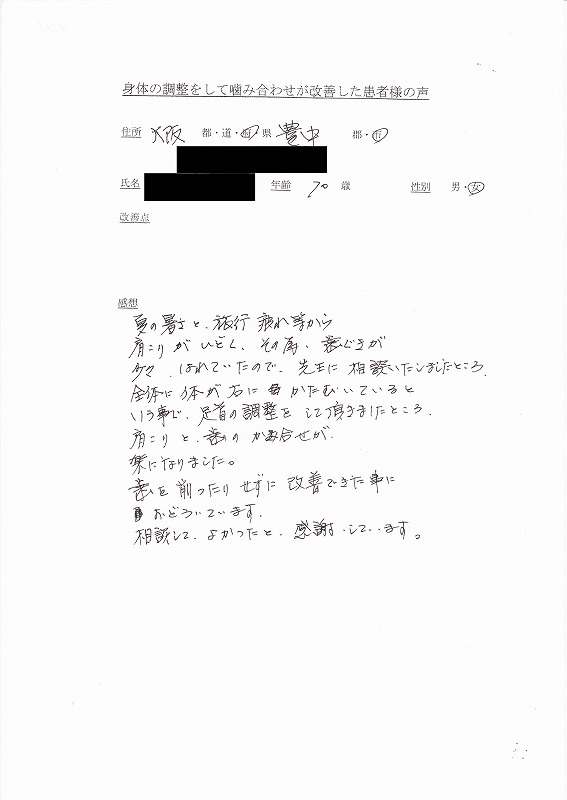 身体の調整をして噛み合わせが改善した患者様の声
住所 大阪 都・道・府・県 豊中 郡・市
氏名 年齢 70 歳 性別 男・女
改善点
感想
夏の暑さと、旅行疲れ等から
肩こりがひどく、その為、歯ぐきが
少々、はれていたので、先生に相談いたしましたところ、
全体に体が右にかたむいていると
いう事で、足首の調整をして頂きましたところ、
肩こりと、歯のかみ合せが、
楽になりました。
歯を削ったりせずに改善できた事に
おどろいています。
相談して、よかったと、感謝しています。